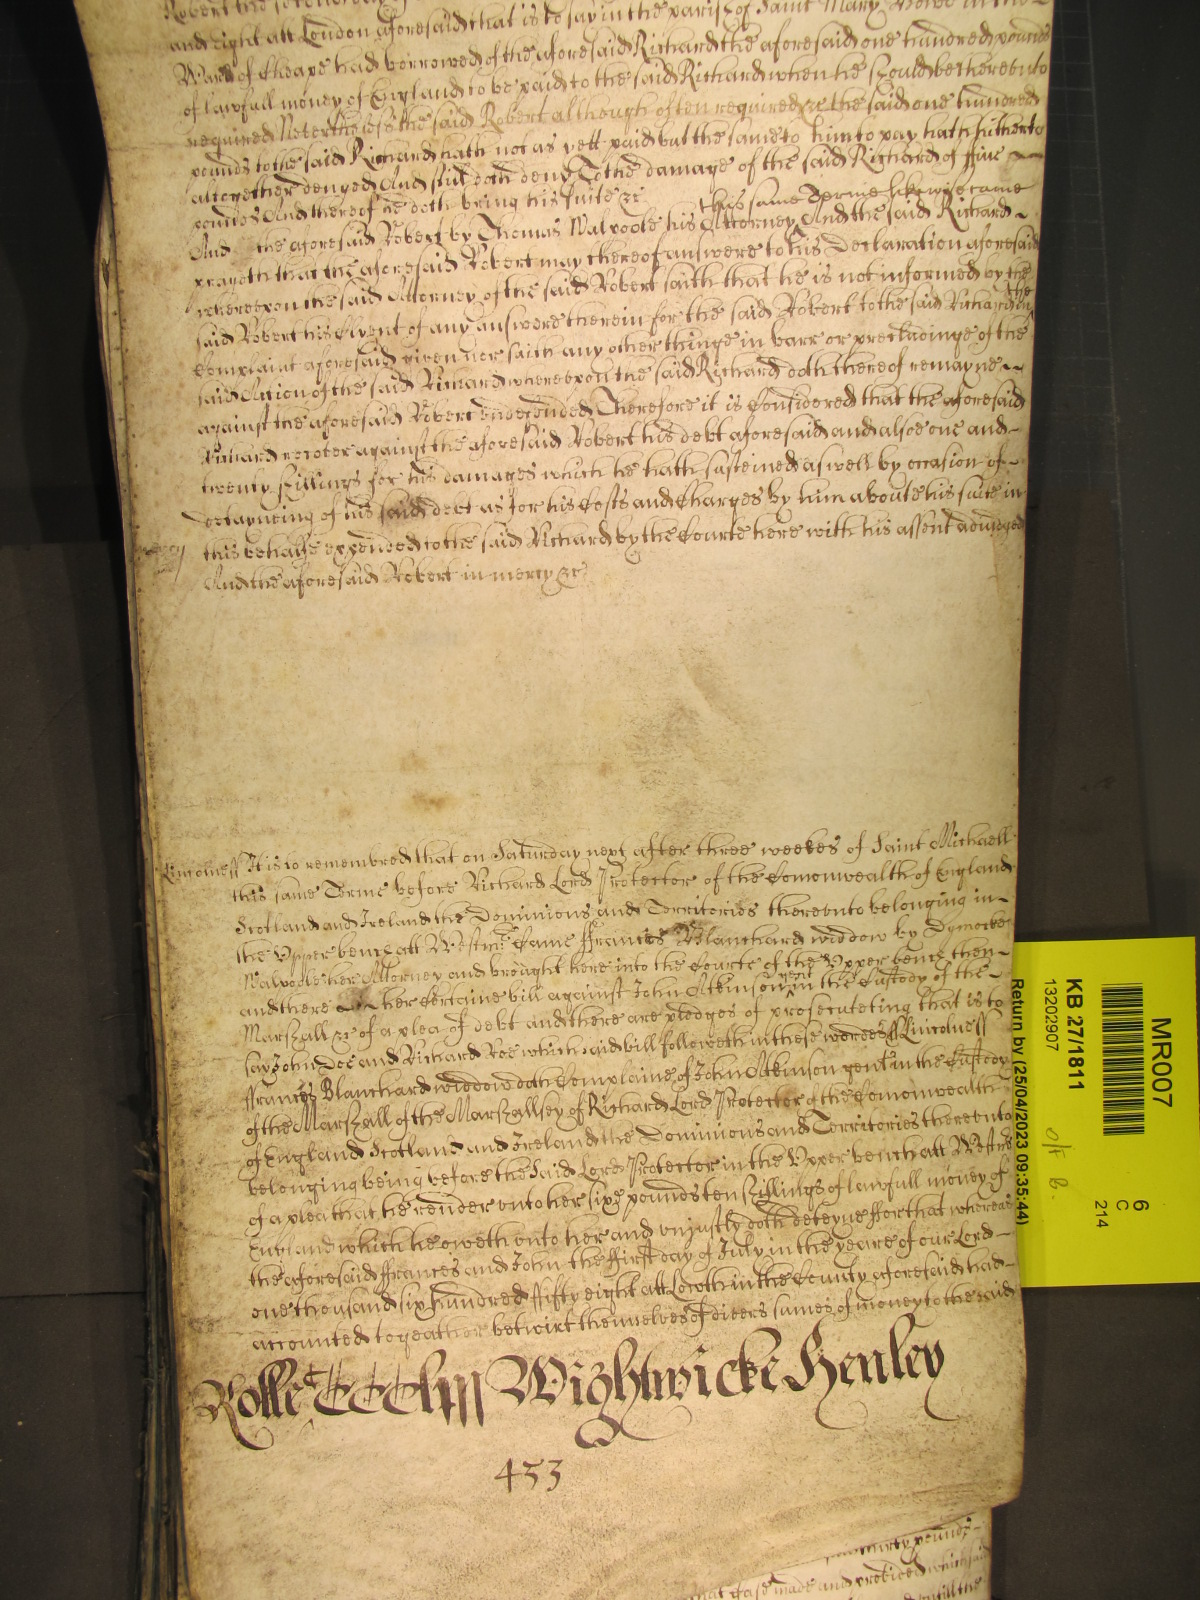 and eight att London aforesaid that is to say in the parish of Saint Mary Bowe in the
Ward of Cheape had borrowed of the aforesaid Richard the aforesaid one hundred pounds
of lawfull money of England to be paid to the said Richard when he should be therevnto
required Neverthelesse the said Robert although often required &c the said one hundred
pounds to the said Richard hath not as yett paid but the same to him to pay hath hitherto
altogether denyed And still doth deny To the damage of the said Richard of five
pounds And thereof he doth bring his suite &c
this same Terme likewise came
And the aforesaid Robert by Thomas Walpoole his Attorney And the said Richard
prayeth that the aforesaid Robert may thereof answere to his Declaration aforesaid
wherevpon the said Attorney of the said Robert saith that he is not informed by the
said Robert his Clyent of any answere therein for the said Robert to the said Richard in the
Complaint aforesaid given nor saith any other thinge in barr or precludinge of the
said Action of the said Richard wherevpon the said Richard doth thereof remayne
against the aforesaid Robert vndefended Therefore it is Considered that the aforesaid
Richard recover against the aforesaid Robert his debt aforesaid and alsoe one and
twenty shillings for his damages which he hath susteined aswell by occasion of
detayneing of his said debt as for his Costs and Charges by him aboute his suite in
this behalfe expended to the said Richard by the Courte here with his assent adiudged
mercy
And the aforesaid Robert in mercy &c
Lincolness It is to remembred that on Saturday next after three weekes of Saint Michaell
this same Terme before Richard Lord Protector of the Comonwealth of England
Scotland and Ireland the Dominions and Territories therevnto belonging in
the Vpper bench att Westmr Came ffrances Blanchard widdow by Dymocke
Walpoole her Attorney and brought here into the Courte of the Vpper bench then
and there her Certaine bill against John Atkinson gent in the Custody of the
Marshall &c of a plea of debt and there are pledges of prosecuteting that is to
say John Doe and Richard Roe which said bill followeth in these wordes ss Lincolness
ffrances Blanchard widdow doth Complaine of John Atkinson gent in the Custody
of the Marshall of the Marshallsey of Richard Lord Protector of the Comonwealth
of England Scotland and Ireland the Dominions and Territories therevnto
belonging being before the said Lord Protector in the Vpper bench att Westmr
of a plea that he render vnto her sixe pounds ten shillings of lawfull money of
England which he oweth vnto her and vniustly doth deteyne ffor that whereas
the aforesaid ffrances and John the ffirst day of July in the yeare of our Lord
one thousand six hundred ffifty eight att Lowth in the County aforesaid had
accounted togeather betwixt themselves of divers sumes of money to the said
Rolle Wightwicke Henley
453
thirty pounds
that Case made and provided which said
MR007
6
C
214
KB 27/1811
13202907
Return by (25/04/2023 09:35:44)